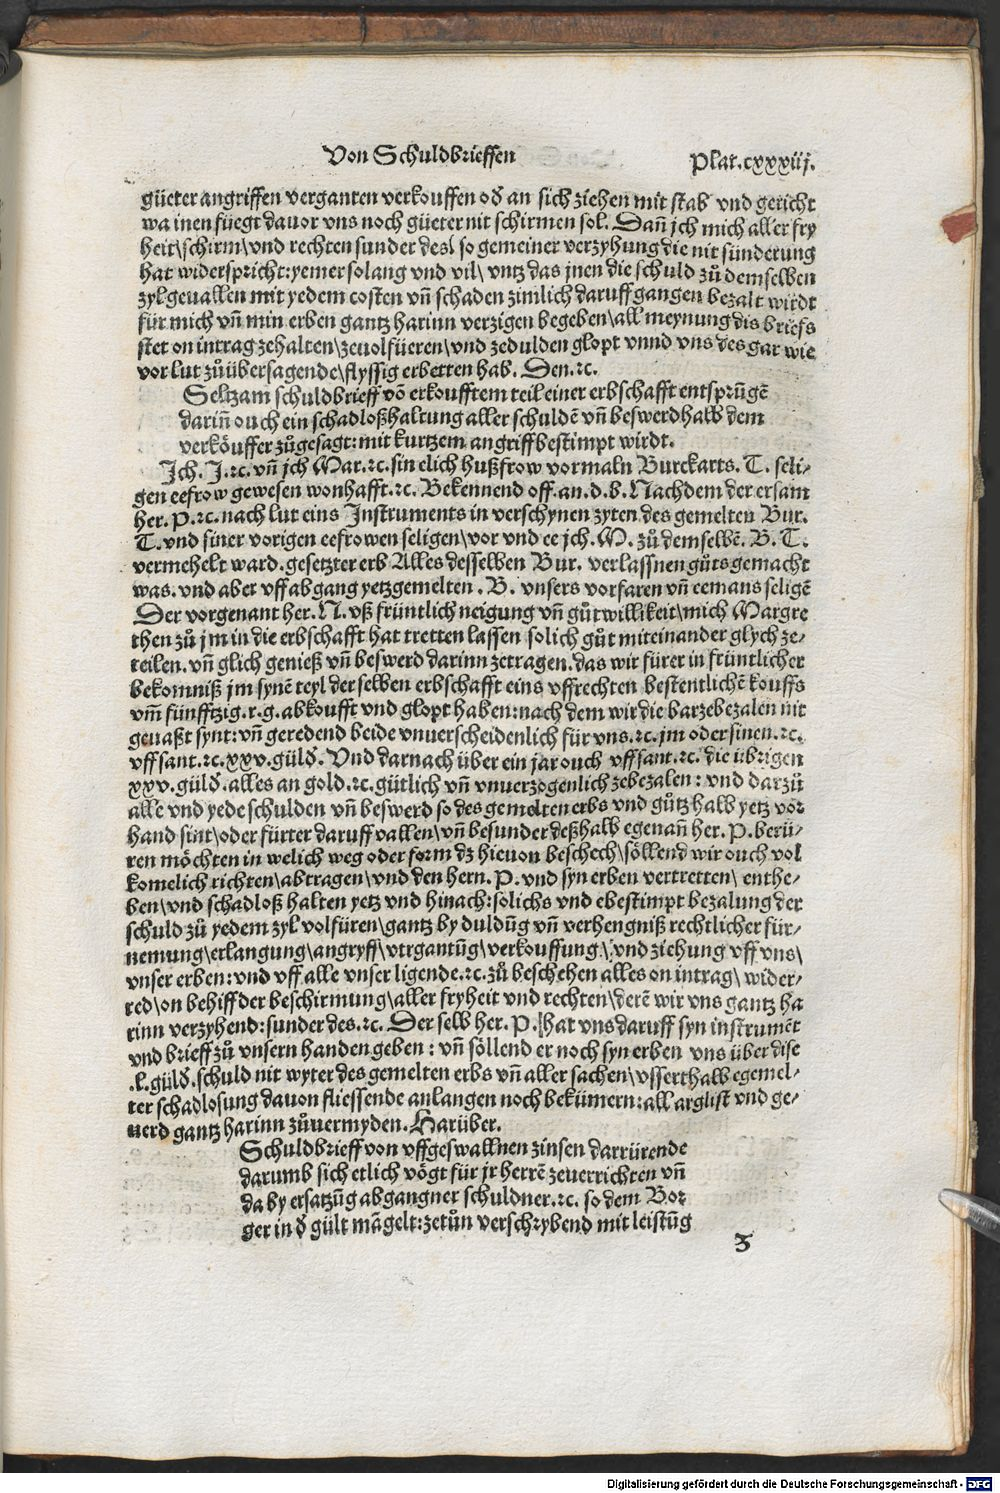 Von Schuldbrieffen
Plat.cxxxiij.
güeter angriffen verganten verkouffen od̄ an sich ziehen mit stab vnd gericht
wa inen füegt dauor vns noch güeter nit schirmen sol. Dan̄ jch mich aller fry
heit\schirm\vnd rechten sunder des\ so gemeiner verzyhung die nit sünderung
hat widerspricht:yemer solang vnd vil\ vntz das jnen die schuld zů demselben
zyl geuallen mit yedem costen vn̄ schaden zimlich daruff gangen bezalt wirdt
für mich vn̄ min erben gantz harinn verzigen begeben\all meynung dis briefs
stet on intrag zehalten\zeuolfüeren\vnd zedulden glopt vnnd vns des gar wie
vor lut zůübersagende\flyssig erbetten hab. Den.⁊c.
Seltzam schuldbrieff vō erkoufftem teil einer erbschafft entsprūgē
darin̄ ouch ein schadloßhaltung aller schuldē vn̄ beswerd halb dem
verköuffer zůgesagt:mit kurtzem angriff bestimpt wirdt.
Jch. J.⁊c. vn̄ jch Mar.⁊c.sin elich hußfrow vormaln Burckarts. T. seli-
gen eefrow gewesen wonhafft.⁊c. Bekennend off.an.d.b.Nachdem der ersam
her. P.⁊c. nach lut eins Instruments in verschynen zyten des gemelten Bur.
T.vnd siner vorigen eefrowen seligen\vor vnd ee jch. M. zů demselbē. B. T.
vermehelt ward.gesetzter erb Alles desselben Bur. verlassnen gůts gemacht
was.vnd aber vff abgang yetzgemelten. B. vnsers vorfaren vn̄ eemans seligē
Der vorgenant her. N. vß früntlich neigung vn̄ gůtwillikeit\mich Margre
then zů jm in die erbschafft hat tretten lassen solich gůt miteinander glych ze-
teilen.vn̄ glich genieß vn̄ beswerd darinn zetragen.das wir fürer in früntlicher
bekomniß jm synē teyl der selben erbschafft eins vffrechten bestentlichē kouffs
vm̄ fünfftzig.r.g.abkoufft vnd glopt haben:nach dem wir die bar zebezalen nit
geuaßt synt:vn̄ geredend beide vnuerscheidenlich für vns.⁊c.jm oder sinen.⁊c.
vff sant.⁊c.xxv.güld̄. Vnd darnach über ein jar ouch vff sant.⁊c.die übrigen
xxv.güld̄.alles an gold.⁊c.gütlich vn̄ vnuerzogenlich zebezalen:vnd darzů
alle vnd yede schulden vn̄ beswerd so des gemelten erbs vnd gůtz halb yetz vor
hand sint\oder fürter daruff vallen\vn̄ besunder deßhalb egenan̄ her. P. berü-
ren möchten in welich weg oder form dz hieuon beschech\söllend wir ouch vol
komelich richten\abtragen\vnd den hern. P. vnd syn erben vertretten\ enthe-
ben\vnd schadloß halten yetz vnd hinach:solichs vnd ebestimpt bezalung der
schuld zů yedem zyl volfüren\gantz by duldūg vn̄ verhengniß rechtlicher für-
nemung\erlangung\angryff\vtrgantūg\verkouffung\ vnd ziehung vff vns\
vnser erben:vnd vff alle vnser ligende.⁊c.zů beschehen alles on intrag\ wider-
red\on behiff der beschirmung\aller fryheit vnd rechten\derē wir vns gantz ha
rinn verzyhend:sunder des.⁊c. Der selb her. P. hat vns daruff syn instrumēt
vnd brieff zů vnsern handen geben: vn̄ söllend er noch syn erben vns über dise
.l.güld̄.schuld nit wyter des gemelten erbs vn̄ aller sachen\vsserthalb egemel-
ter schadlosung dauon fliessende anlangen noch bekümern:all arglist vnd ge-
uerd gantz harinn zůuermyden. Harüber.
Schuldbrieff von vffgeswallnen zinsen darrürende
darumb sich etlich vögt für jr herrē zeuerrichten vn̄
da by ersatzūg abgangner schuldner.⁊c. so dem Bor
ger in d̄ gült māgelt:zetůn verschrybend mit leistūg
Z
Digitalisierung gefördert durch die Deutsche Forschungsgemeinschaft - DFG